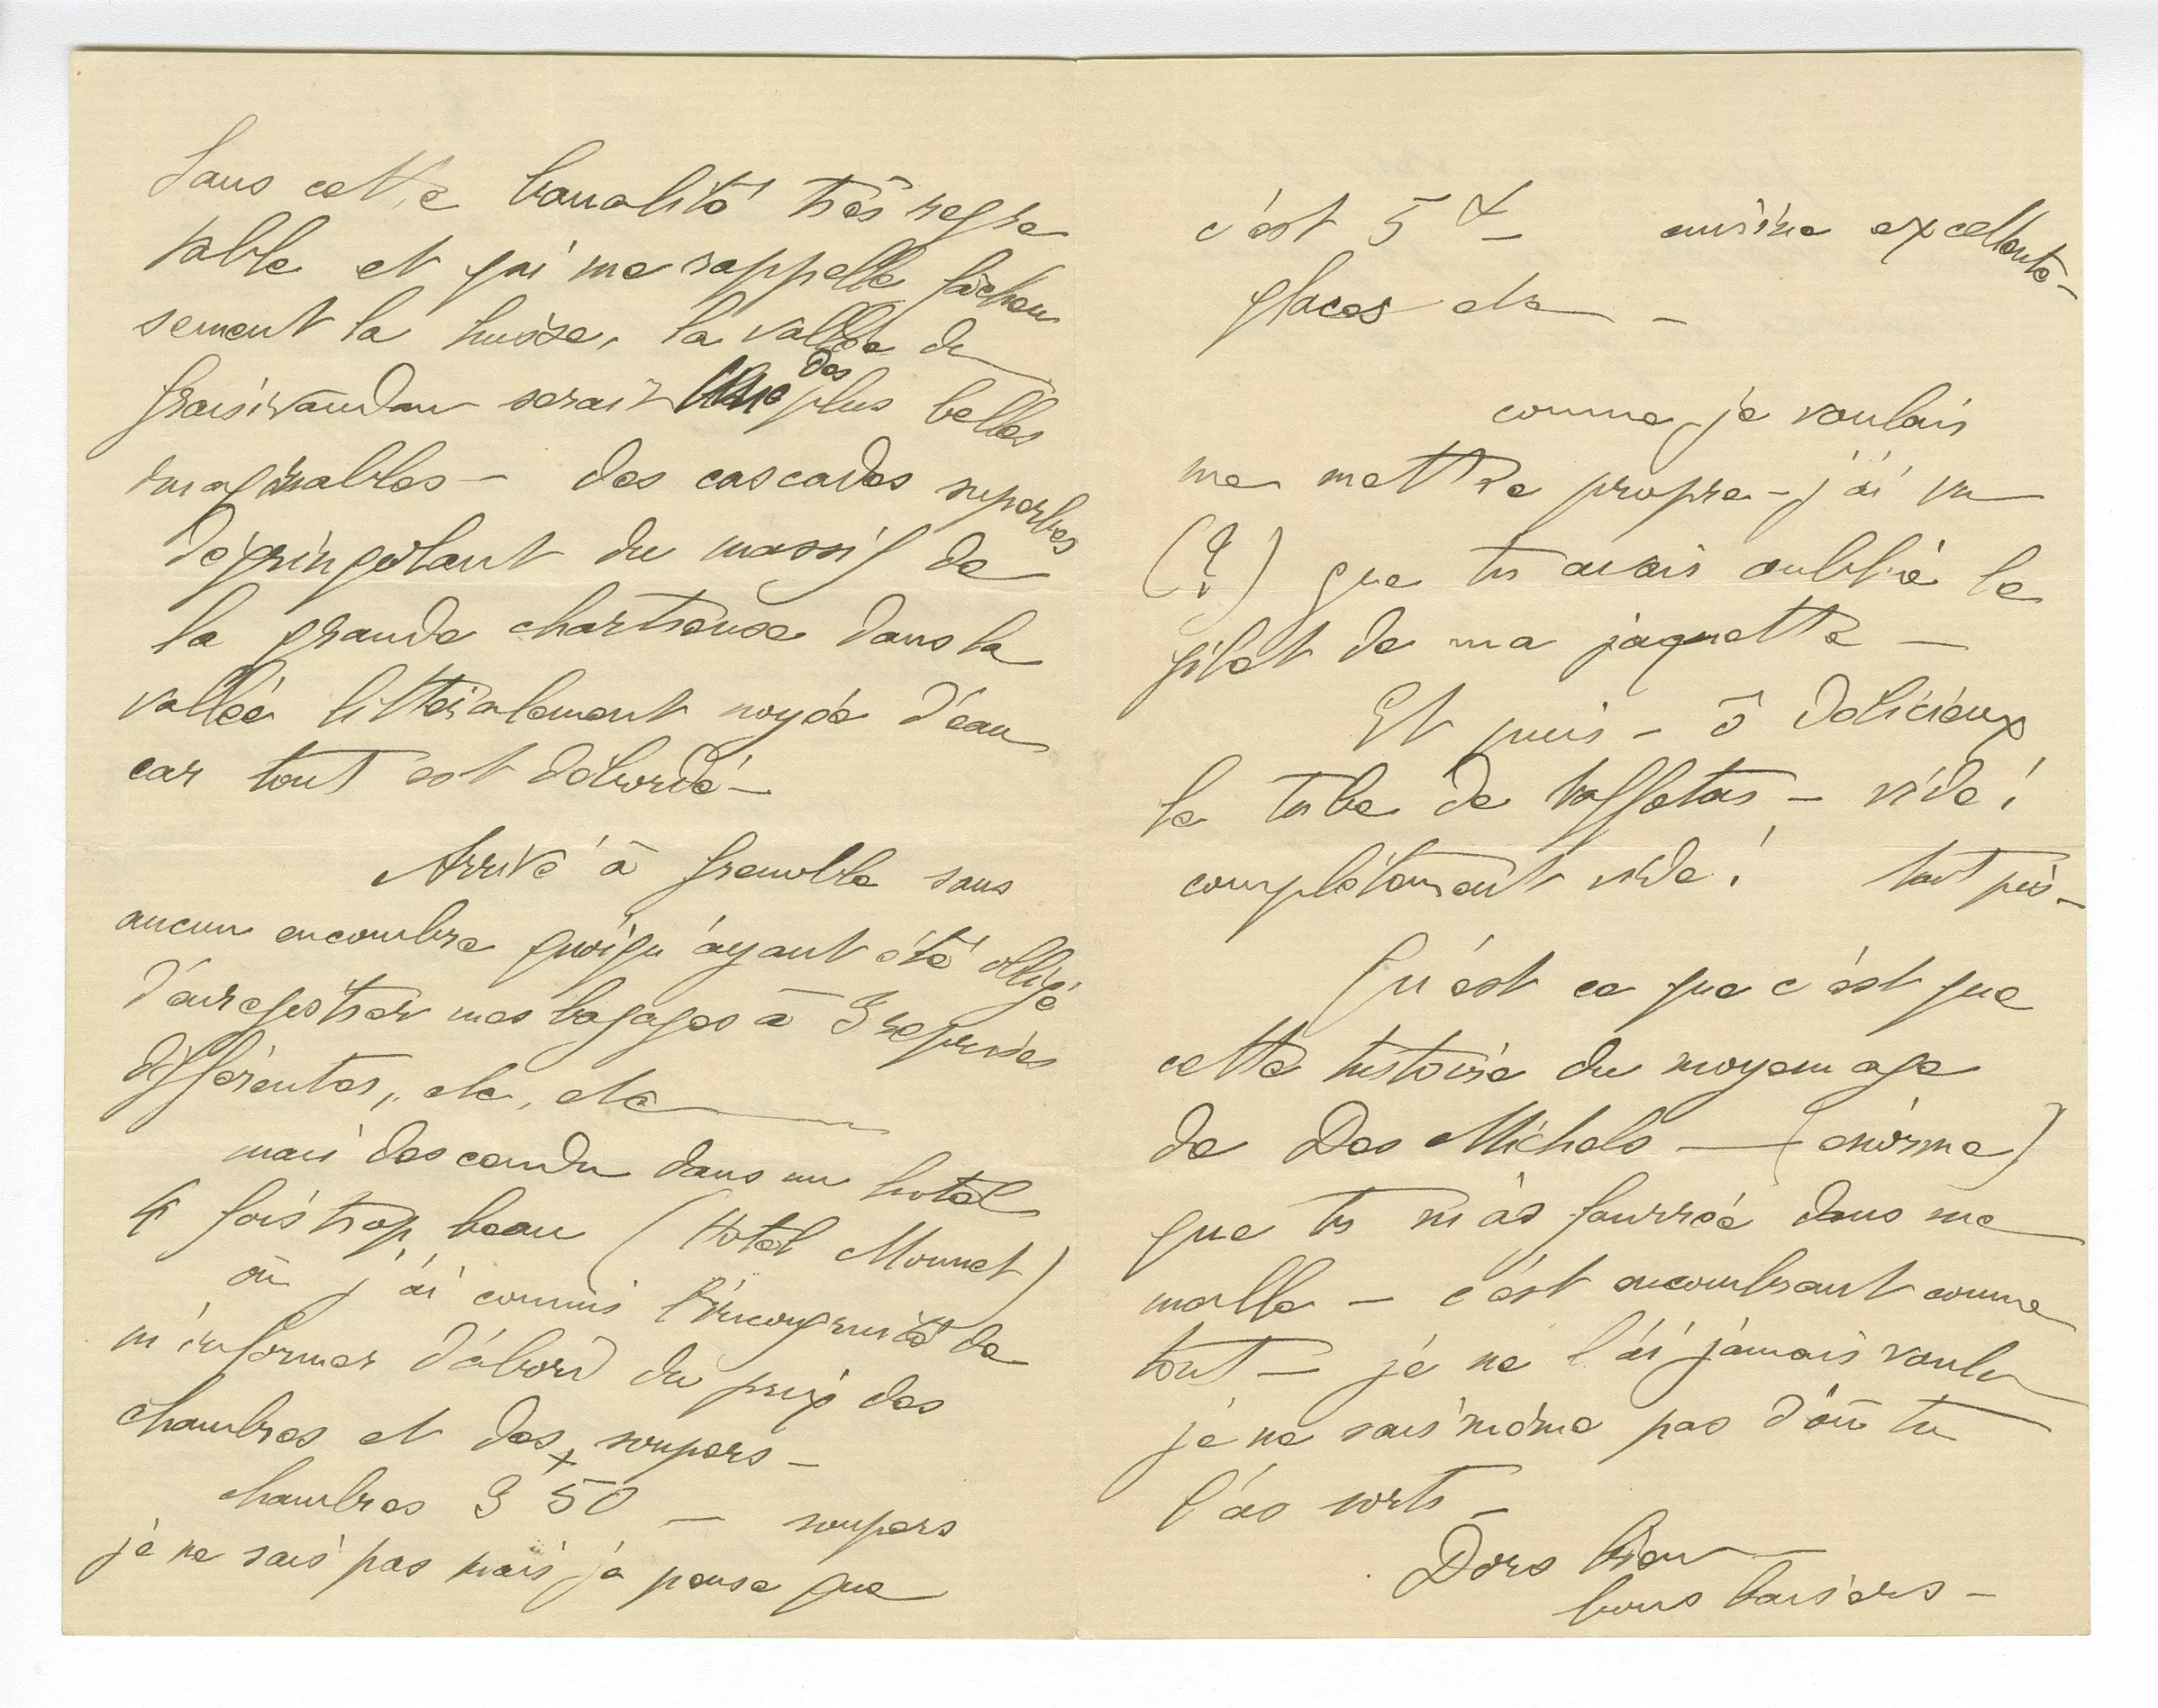 Sans cette banalité très regre
table et qui me rappelle fâcheu
sement la Suisse, la vallée du
Graisivaudan serait une des plus belles
imaginables — des cascades superbes
dégringolant du massif de
la grande chartreuse dans la
vallée littéralement noyée d'eau
car tout est débordé —
Arrivé à Grenoble sans
aucun encombre quoiqu'ayant été obligé
d'enregistrer mes bagages à 3 reprises
différentes, etc, etc
mais descendu dans un hotel
4 fois trop beau (Hotel Monnet)
où j'ai commis l'incongruité de
m'informer d'abord du prix des
chambres et des soupers —
chambres 3 50 — soupers
je ne sais pas mais je pense que
c'est 5 f — cuisine excellente —
glaces etc —
comme je voulais
me mettre propre — j'ai vu
(?) que tu avais oublié le
gilet de ma jaquette —
Et puis — ô délicieux
le tube de taffetas — vide !
complètement vide ! tant pis —
Qu'est ce que c'est que
cette histoire du moyen age
de Des Michels — (énorme)
que tu m'as fourrée dans ma
malle — c'est encombrant comme
tout — je ne l'ai jamais voulu
je ne sais même pas d'où tu
l'as sorti —
Dors bien
bons baisers —